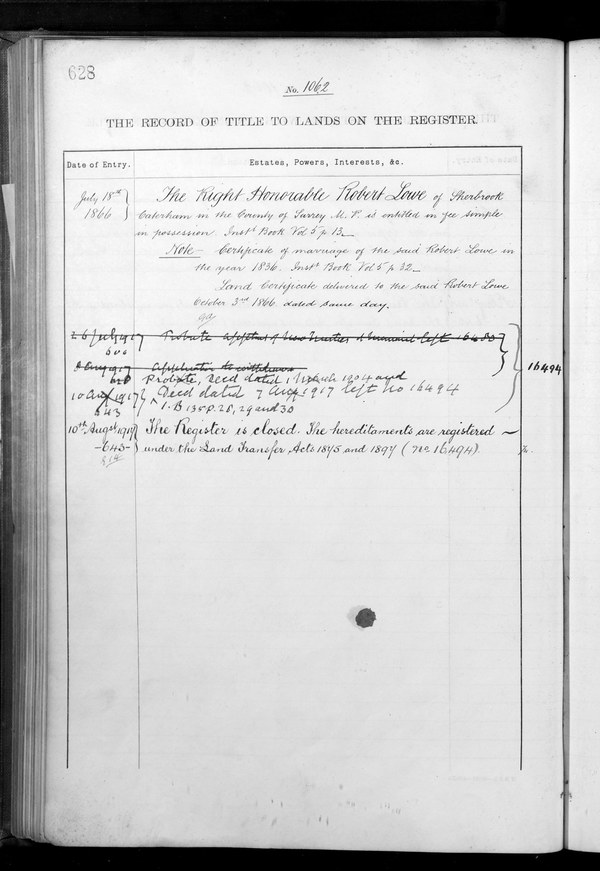 628
No. 1062
THE RECORD OF TITLE TO LANDS ON THE REGISTER.
Date of Entry.
Estates, Powers, Interests, &c.
July 18th 1866
The Right Honorable Robert Lowe of Sherbrook
Caterham in the County of Surrey M. P. is entitled in fee simple
in possession. Inst. Book Vol 5 p. 13
Note - Certificate of marriage of the said Robert Lowe in
the year 1836. Inst. Book Vol 5 p. 32
Land Certificate delivered to the said Robert Lowe
October 3rd 1866 dated same day.
26 July 1917
600
Probate left 16483
16494
8 Aug 1917
Application to withdraw
Probate, deed dated 1 March 1904 and
10 Aug 1917
643
Deed dated 7 Aug 1917 left no 16494
I. B 135 P. 28, 29 and 30
10th Augst. 1917
-643-
The Register is closed. The hereditaments are registered
under the Land Transfer Acts 1875 and 1897 (No. 16494).